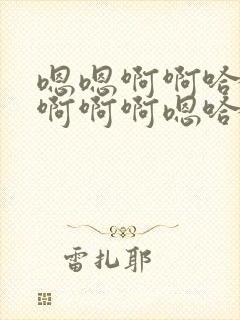 嗯嗯啊啊哈
啊啊啊嗯哈
雷扎耶